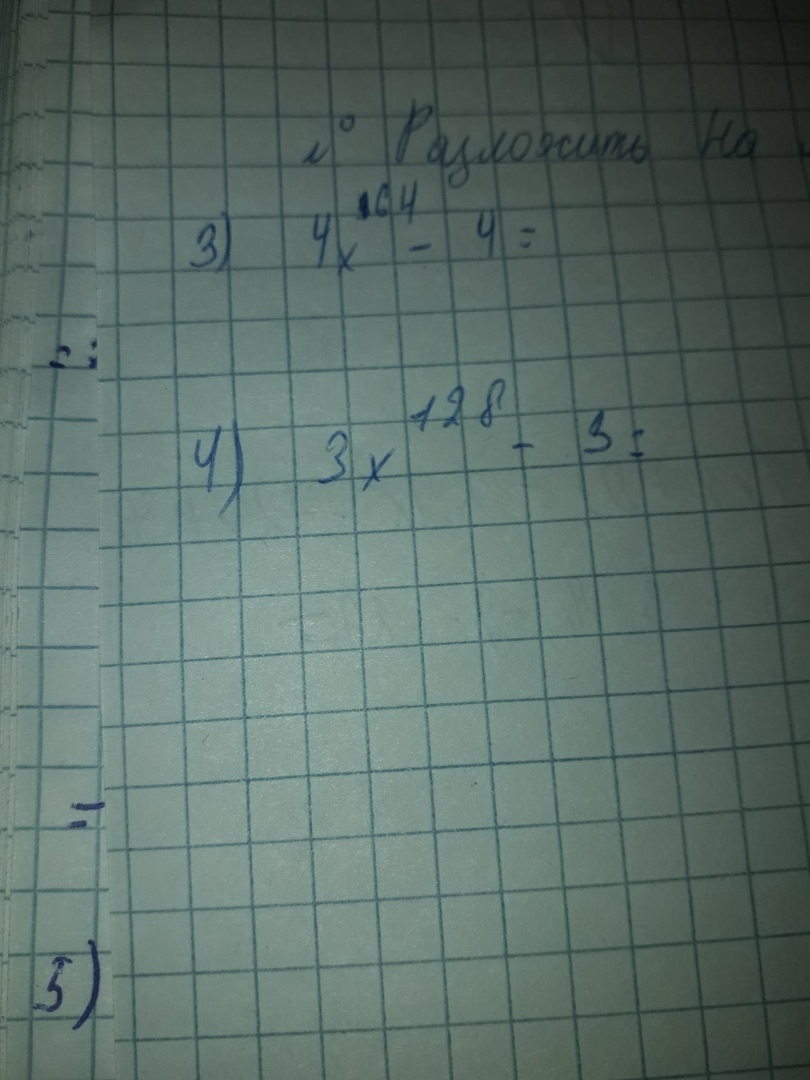 № Разложить на
3) 4x^64 - 4 =
=
4) 3x^128 - 3 =
=
5)